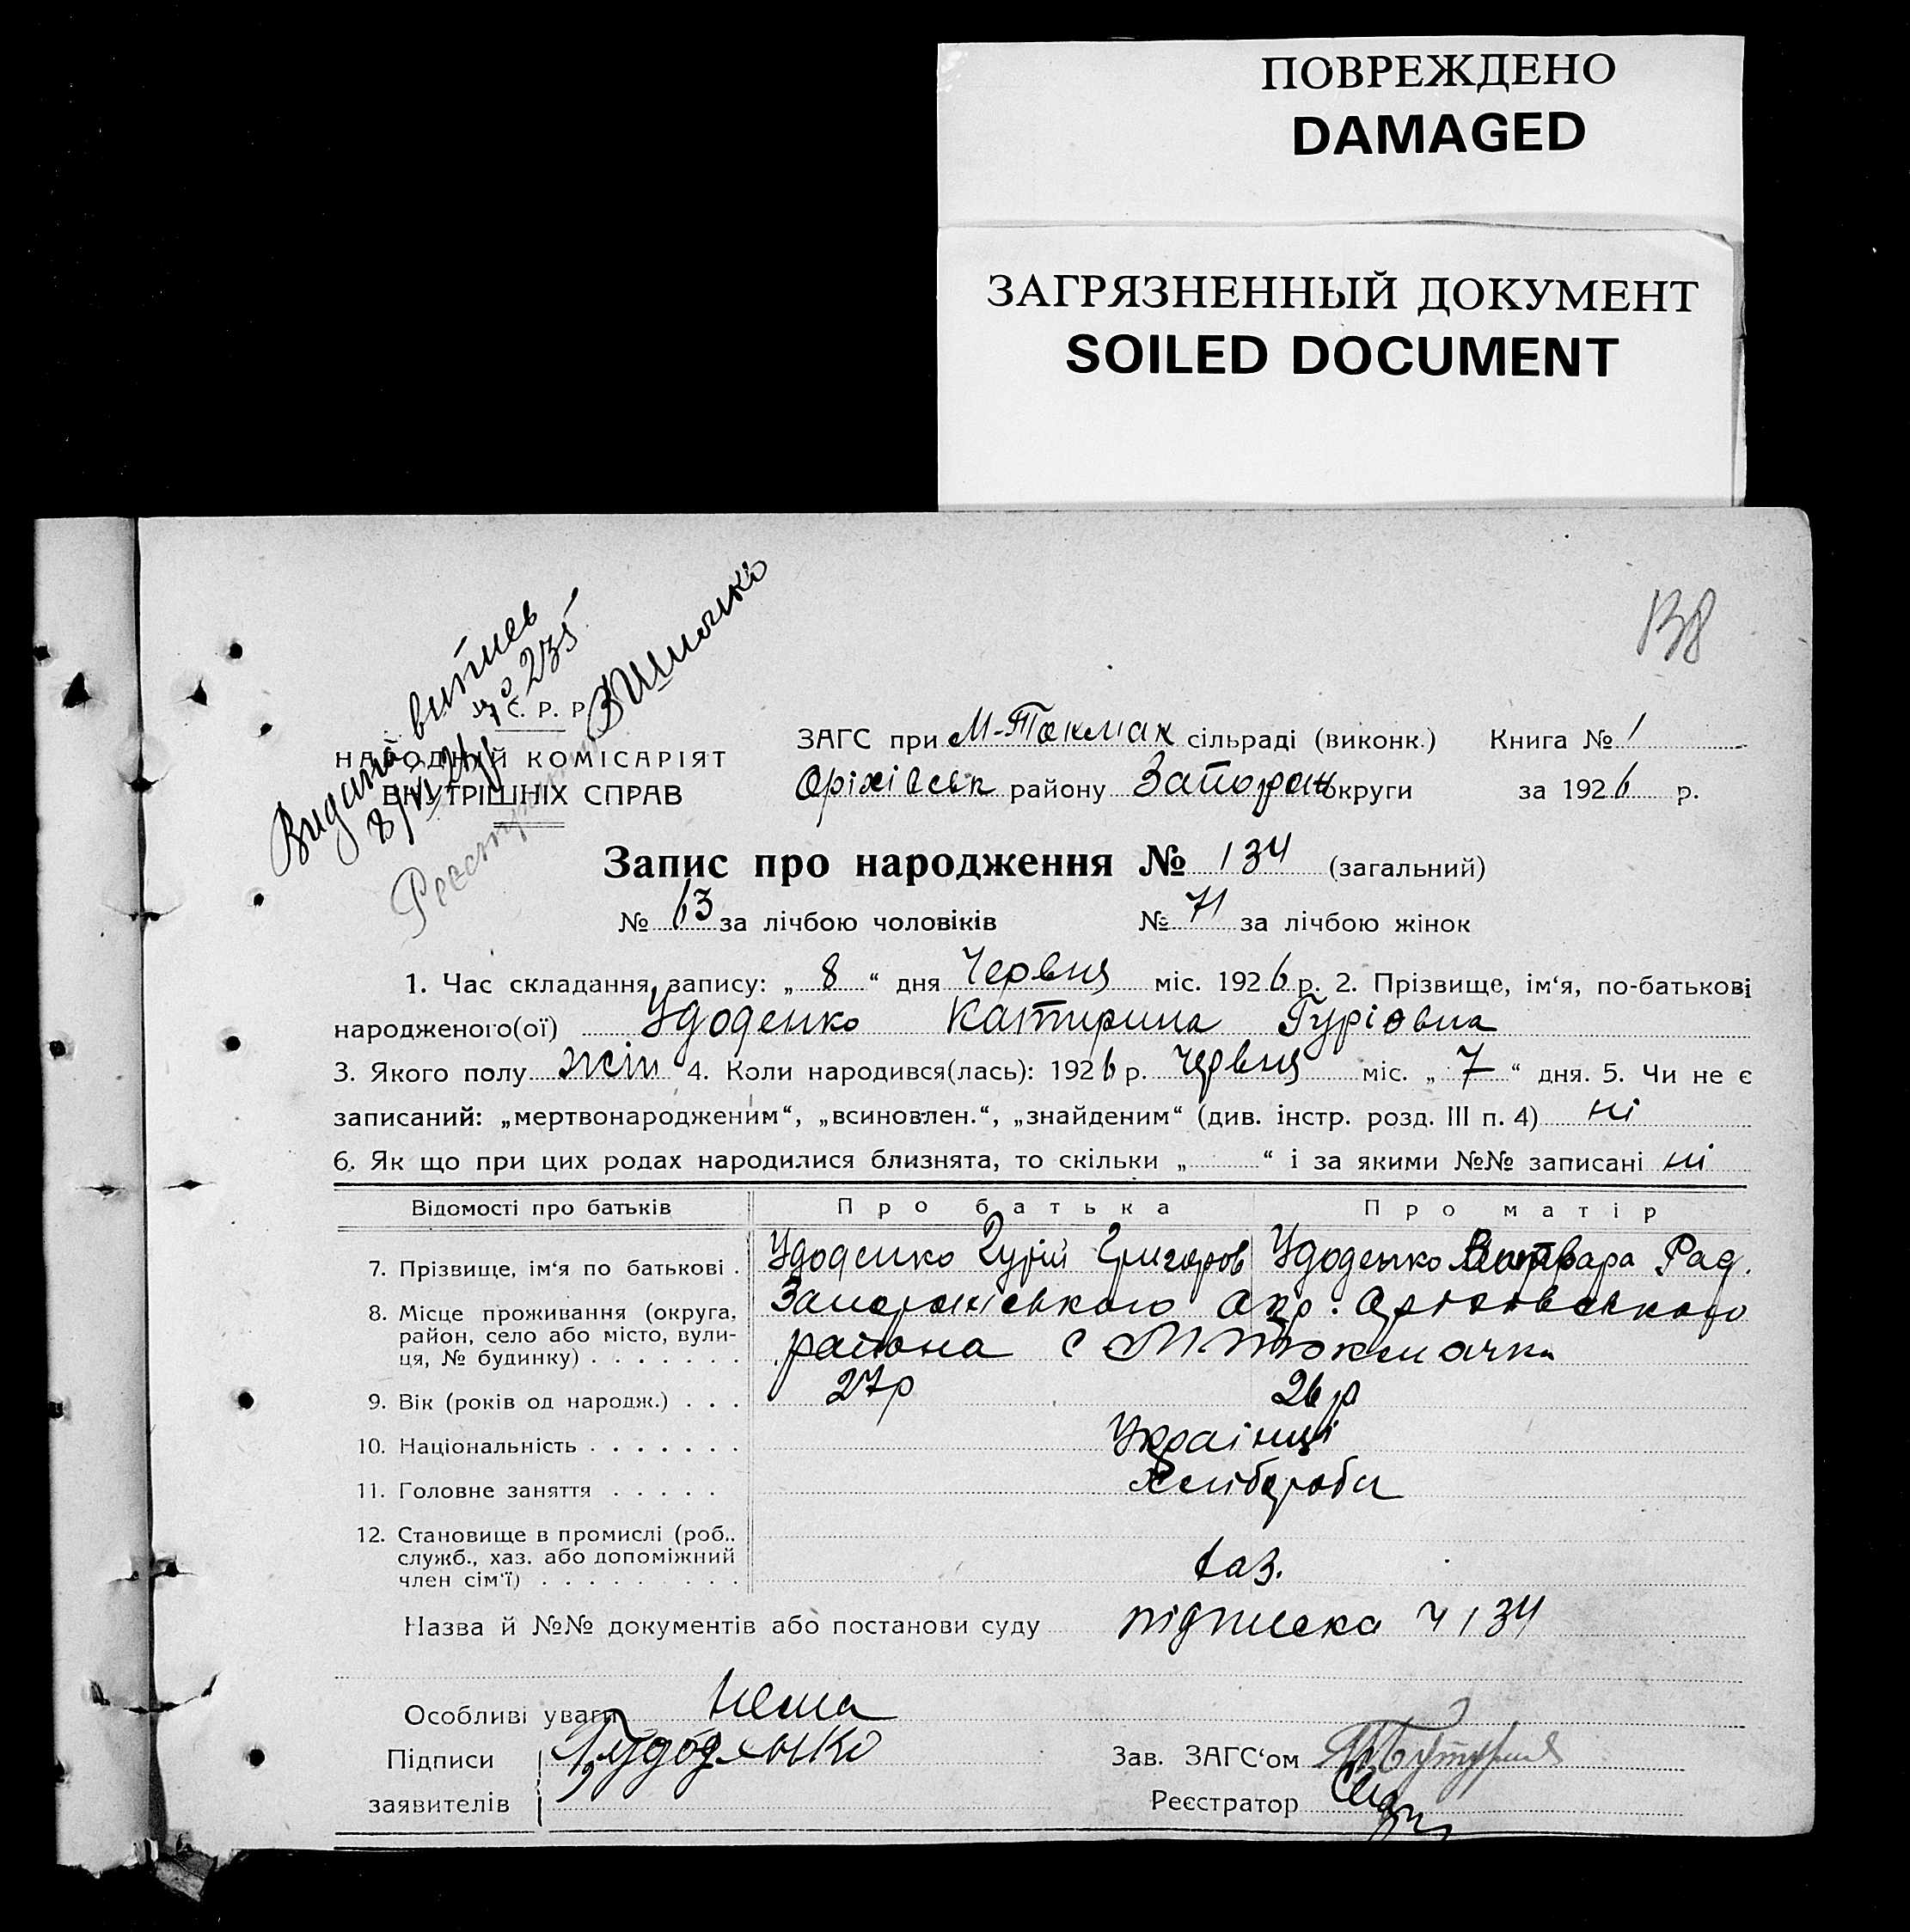 ПОВРЕЖДЕНО
DAMAGED
ЗАГРЯЗНЕННЫЙ ДОКУМЕНТ
SOILED DOCUMENT
138
Видано витпсь
№ 235
Реєстр
С. Р. Р.
НАРОДНІЙ КОМІСАРІЯТ
ВНУТРІШНІХ СПРАВ
ЗАГС при М-Токмак сільраді (виконк.) Книга № 1
Оріхівськ району Запорож округи за 1926 р.
Запис про народження № 134 (загальний)
№ 63 за лічбою чоловіків № 71 за лічбою жінок
1. Час складання запису: „ 8 “ дня Червня міс. 1926 р. 2. Прізвище, ім‘я, по-батькові
народженого(ої) Удоденко Катирина Гурієвна
3. Якого полу жін 4. Коли народився(лась): 1926 р. червня міс. „ 7 “ дня. 5. Чи не є
записаний: „мертвонародженим“, „всиновлен.“, „знайденим“ (див. інстр. розд. III п. 4) ні
6. Як що при цих родах народилися близнята, то скільки „ “ і за якими №№ записані ні
Відомості про батьків Про батька Про матір
7. Прізвище, ім‘я по батькові . Удоденко Гурій Григоров Удоденко Варвара Рад.
8. Місце проживання (округа, район, село або місто, вули- ця, № будинку) . . . . . . . Запоріжського окр. Оріхівського
района с М Токмачка
9. Вік (років од народж.) . . . 27р 26р
10. Національність . . . . . . . Українці
11. Головне заняття . . . . . хлібороби
12. Становище в промислі (роб..
служб., хаз. або допоміжний
член сім‘ї) . . . . . . . . . хаз.
Назва й №№ документів або постанови суду підписка ч 134
Особливі уваги нема
Підписи Гудоденко Зав. ЗАГС‘ом
заявителів Реєстратор